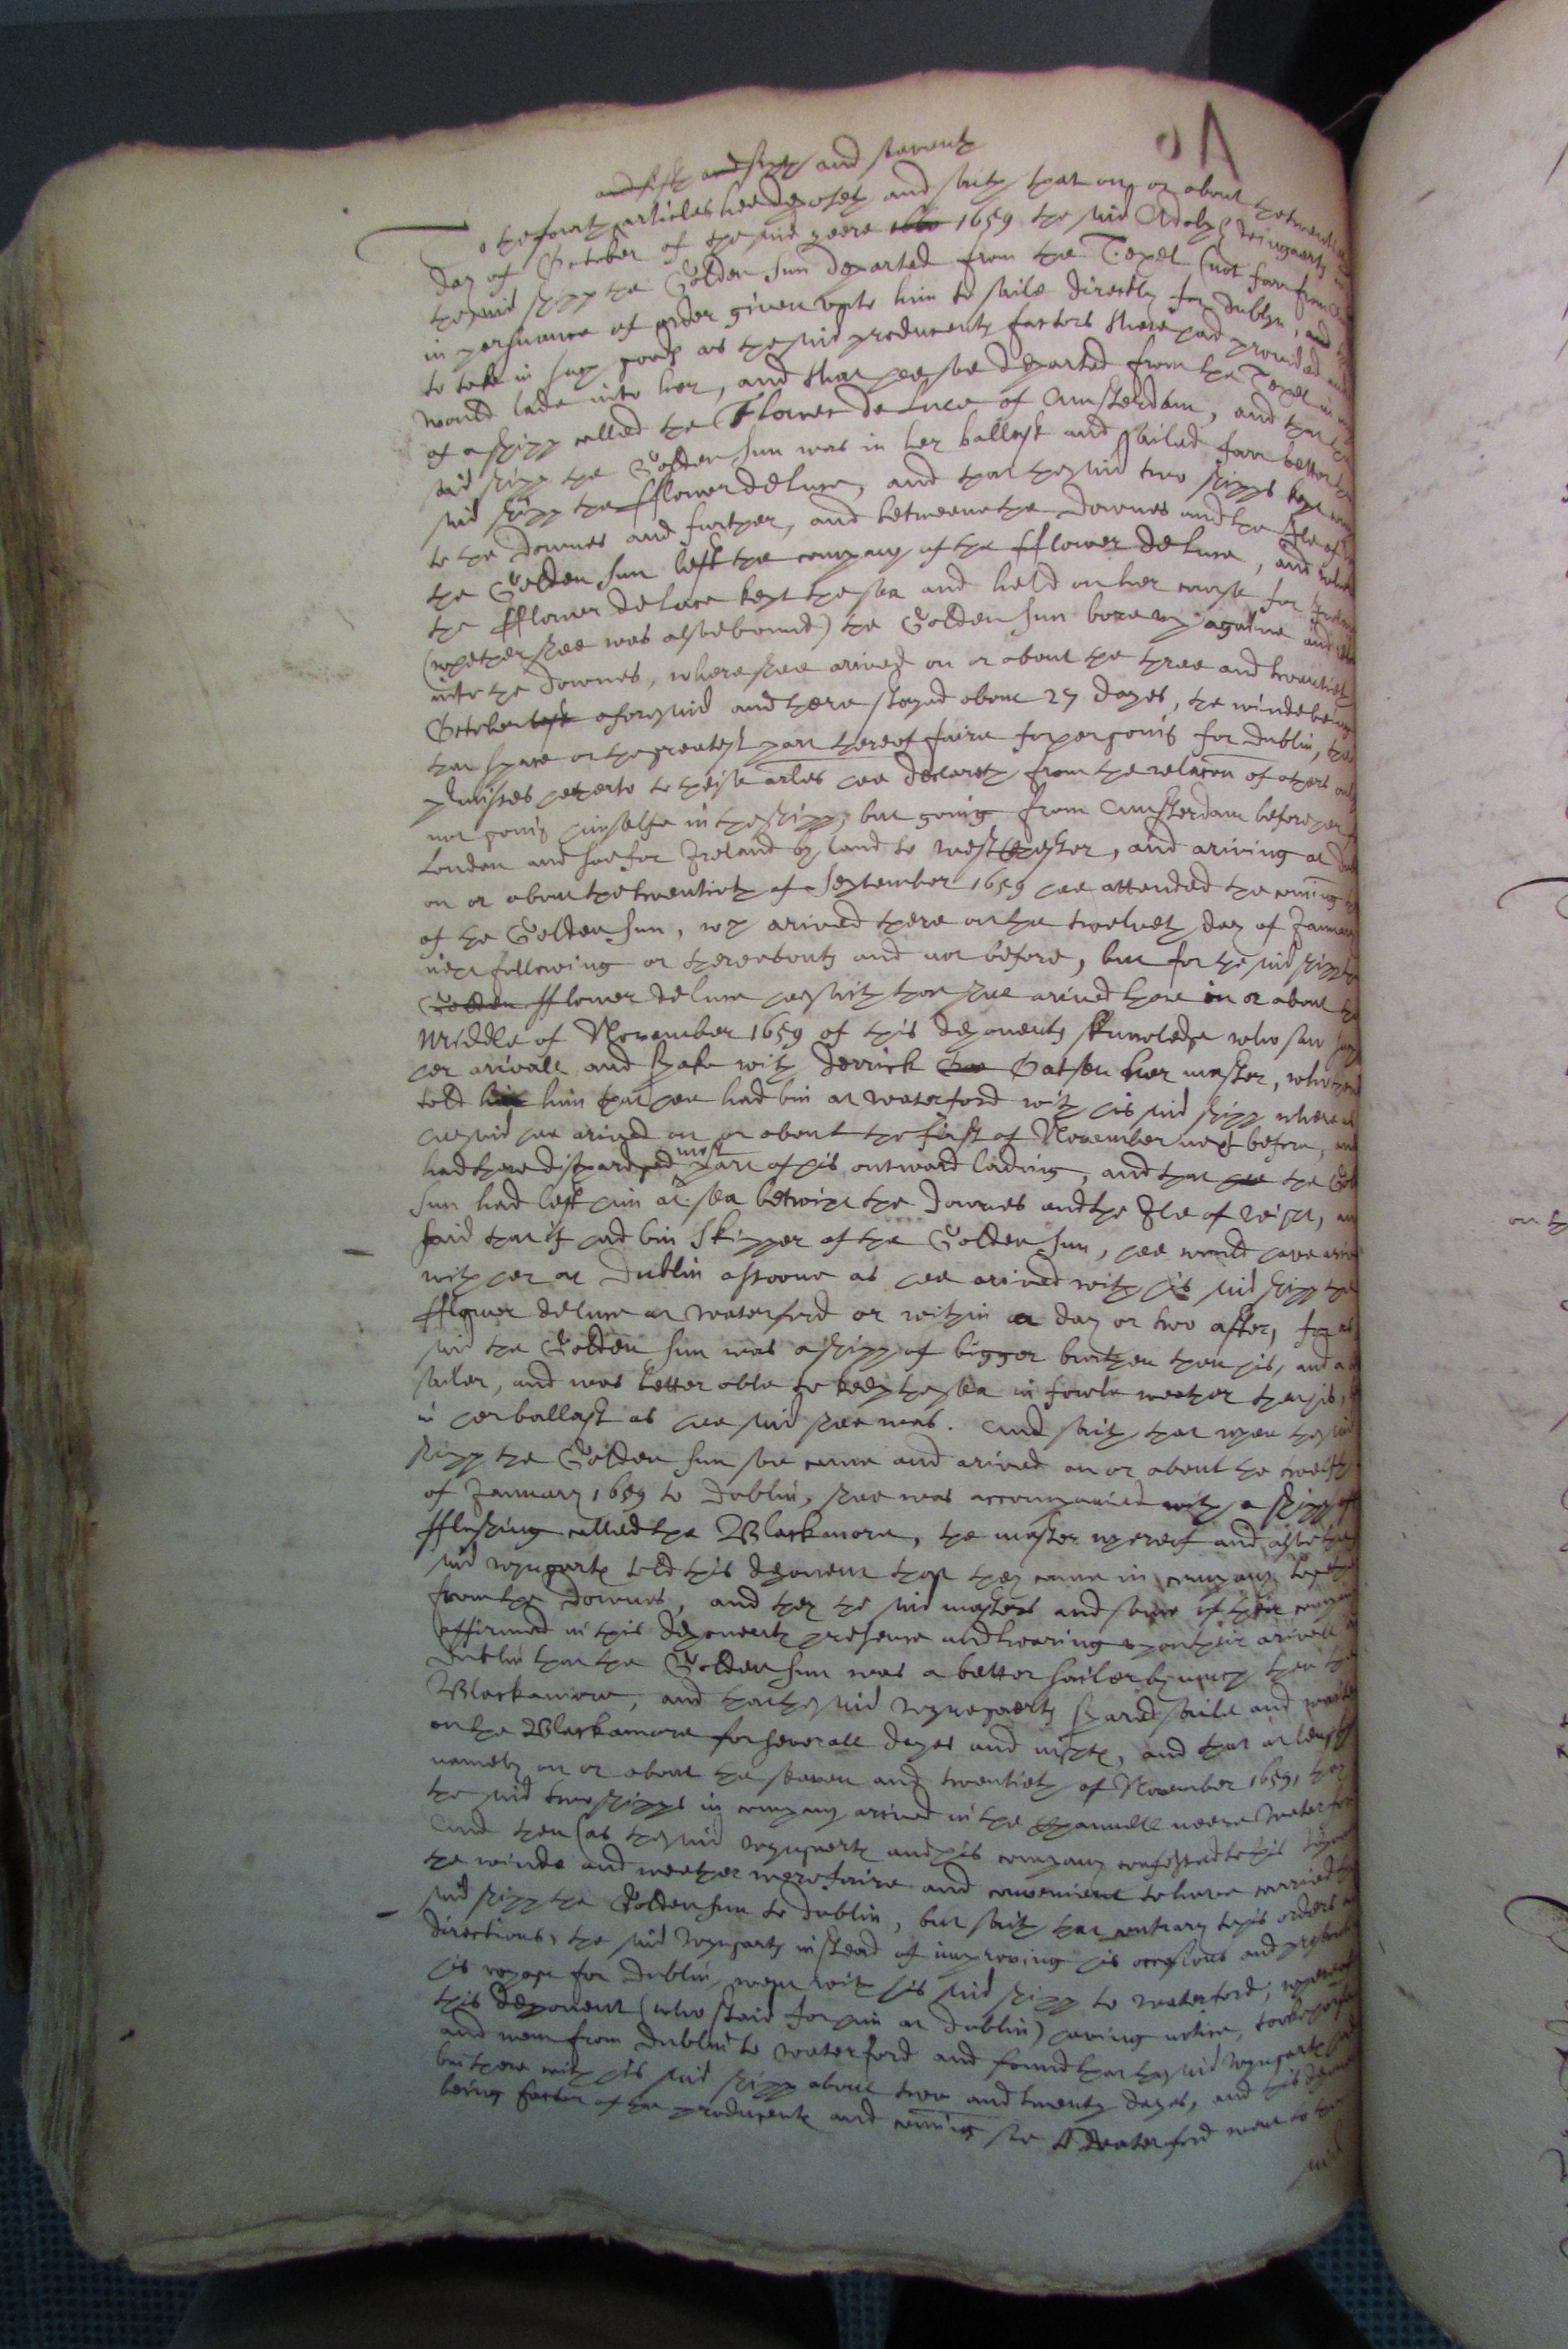 and fifth and sixth and seaventh
To the fourth articles hee deposeth and saith that on or about the twentieth
day of October of the said yeere 1660 1659 the said Adolph Weingaerts
the said shipp the Golden Sun departed from the Texel (not farr from
in persuance of order given unto him to saile directly for Dublyn, and
to take in such goods as the said producents factors there had provided and
would lade into her, and that hee soe departed from the Texel in
of a shipp called the Flower de Luce of Amsterdam, and that the
said shipp the Golden Sun was in her ballast and sailed farr better
said shipp the fflower de Luce, and that the said two shipps kept
to the Downes and further, and betweene the Downes and the Ile of
the Golden Sun left the company of the fflower de Luce, and
the fflower de Luce kept the sea and held on her course for
(whether shee was alsoe bound) the Golden Sun bore up againe and
into the Downes, where shee arived on or about the three and twentieth
October last aforesaid and there stayed about 27 dayes, the winde being
that space or the greatest part thereof faire for her going for Dublin, the
premisses hetherto to theise arles hee declareth from the relacon of others
not going himselfe in the shipp, but going from Amsterdam before
London and soe for Ireland by land to Westchester, and ariving at
on or about the twentieth of September 1659 hee attended the coming
of the Golden Sun, wch arived there on the twelveth day of January
next following or thereabouts and not before, but for the said shipp
Golden fflower de Luce hee saith that shee arived there in or about the
middle of November 1659 of this deponents knowledge who saw
her arivall and spake with Derrick Oatsen her master, who
told him that hee had bin at Waterford with his said shipp where
hee said hee arived on or about the first of November next before, and
had there discharged most part of his outward lading, and that hee the
Sun had left him at sea betwixt the Downes and the Ile of Weight, and
said that if had bin Skipper of the Golden Sun, hee would have
with her at Dublin assoone as hee arived with his said shipp the
fflower de Luce at Waterford or within a day or two after, for as
said the Golden Sun was a shipp of bigger burthen then his, and a
sailer, and was better able to keep the sea in fowle weather then his,
in her ballast as hee said shee was. And saith that when the said
shipp the Golden Sun soe came and arived on or about the twelfth
of January 1659 to Dublin, shee was accompanied with a shipp of
fflushing called the Blackmore, the master whereof and alsoe the
said Wyngartz told this deponent that they came in company
from the Downes, and they the said masters and some of their
affirmed in this deponents presence and hearing upon their arivall
Dublin that the Golden Sun was a better sailer by much then the
Blackamore, and that the said Wyngaerts spared saile and
on the Blackamore for severall dayes and nights, and that at length
namely on or about the seaven and twentieth of November 1659, they
the said two shipps in company arived in the Channell neere Waterford
And then (as the said Wyngartz and his company confessed to this
the winde and weather were faire and convenient to have carried
said shipp the Golden Sun to Dublin, but saith that contrary to his orders
directions, the said Wyngartz instead of improving his occasions and
his voyage for Dublin, went with his said shipp to Waterford, whereof
this deponent (who staid for him at Dublin) having notice, tooke
and went from Dublin to Waterford and found that the said Wyngartz
bin there with his said shipp about two and twenty dayes, and this
being factor of the producents and coming soe to Waterford went to
said